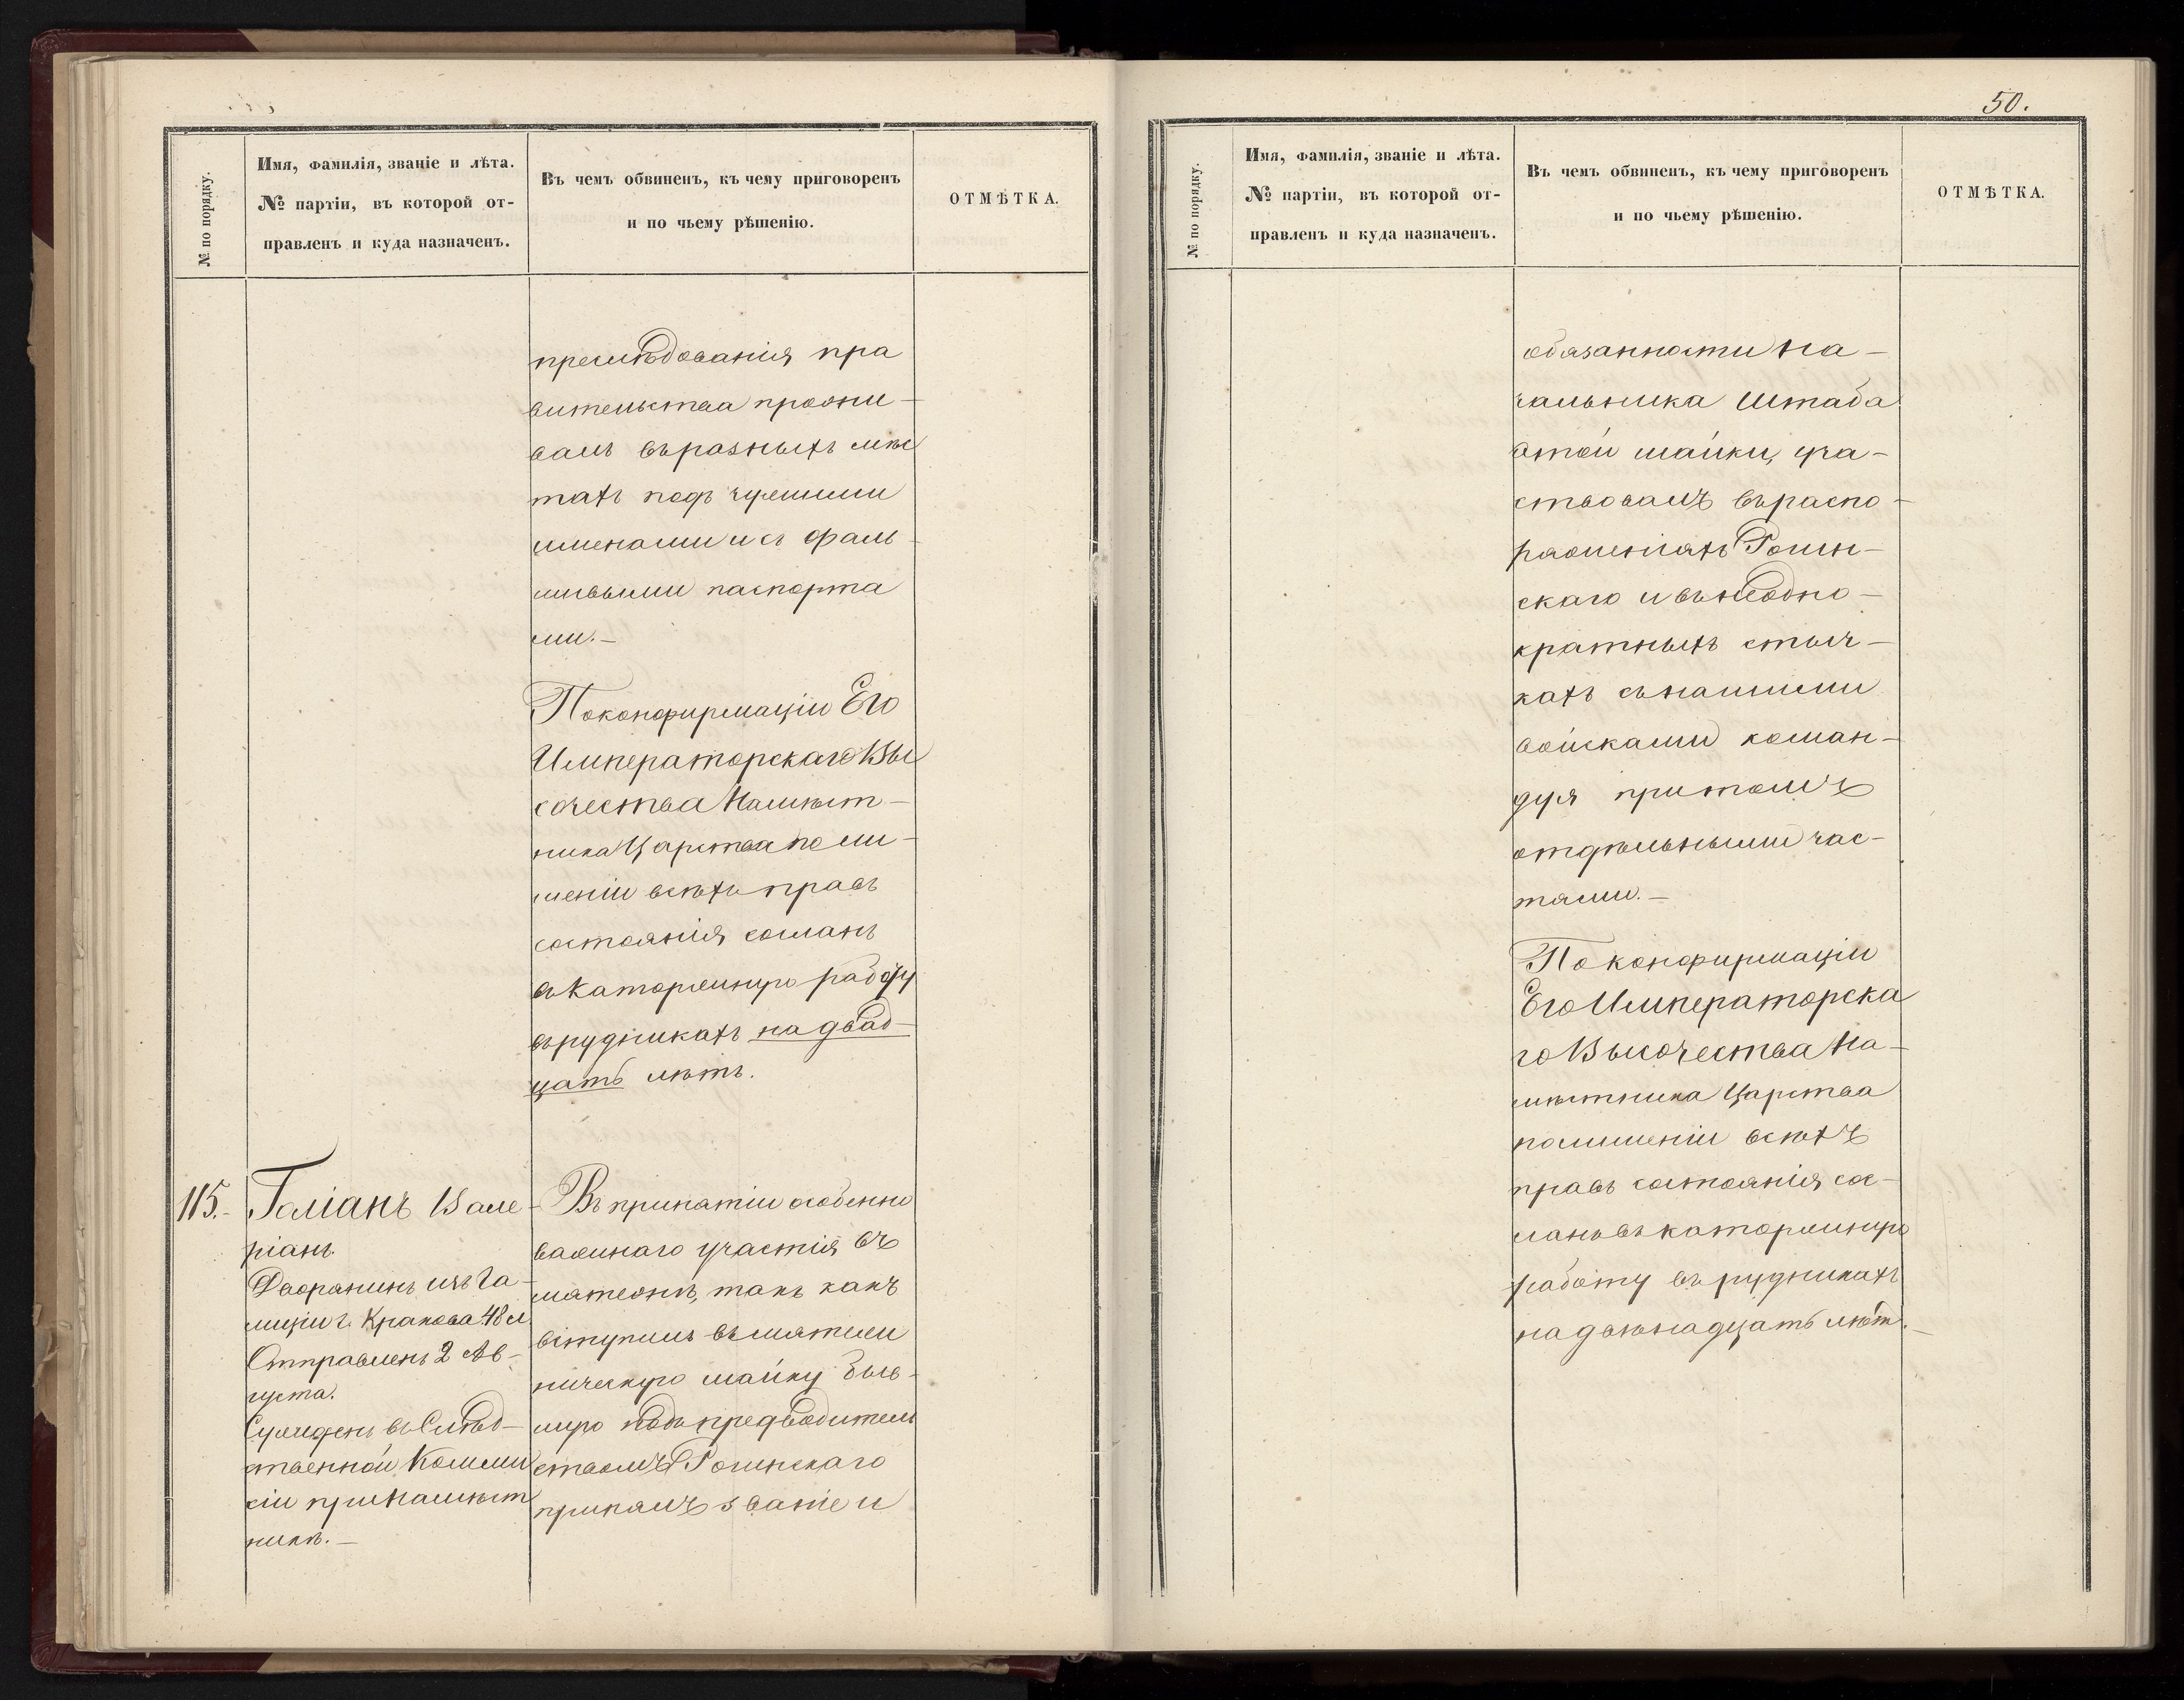 № по порядку.
Имя, фамилія, званіе и лѣта.
№ партіи, въ которой от-
правленъ и куда назначенъ.
Въ чемъ обвиненъ, къ чему приговоренъ
и по чьему рѣшенію.
ОТМѢТКА.
преслѣдованія пра
вительства прожи-
валъ въ разныхъ мѣс
тахъ подъ чужими
именами и съ фаль-
шивыми паспорта
ми.—
По конфирмаціи Его
Императорскаго Вы
сочества Намѣст-
ника Царства по ли-
шеніи всѣхъ правъ
состоянія сосланъ
въ каторжную работу
въ рудникахъ на двад-
цать лѣтъ.
115.-
Галіанъ Вале-
ріанъ.
Дворянинъ изъ Га-
лиціи г. Кракова 48 л
Отправленъ 2 Ав-
густа.
Сужденъ въ Слѣд-
ственной Коммис
сіи при Намѣст
никѣ.—
Въ принятіи особенно
важнаго участія въ
мятежѣ, такъ какъ
вступилъ въ мятеж
ническую шайку быв-
шую подъ предводитель
ствомъ Рогинскаго
принялъ званіе и
50.
№ по порядку.
Имя, фамилія, званіе и лѣта.
№ партіи, въ которой от-
правленъ и куда назначенъ.
Въ чемъ обвиненъ, къ чему приговоренъ
и по чьему рѣшенію.
ОТМѢТКА.
обязанности На-
чальника Штаба
этой шайки, уча-
ствовалъ въ распо-
ряженіяхъ Рогин-
скаго и въ неодно-
кратныхъ стыч-
кахъ съ нашими
войсками коман-
дуя притомъ
отдѣльными час-
тями.—
По конфирмаціи
Его Императорска
го Высочества На-
мѣстника Царства
по лишеніи всѣхъ
правъ состоянія сос-
ланъ въ каторжную
работу въ рудникахъ
на двѣнадцать лѣтъ.—